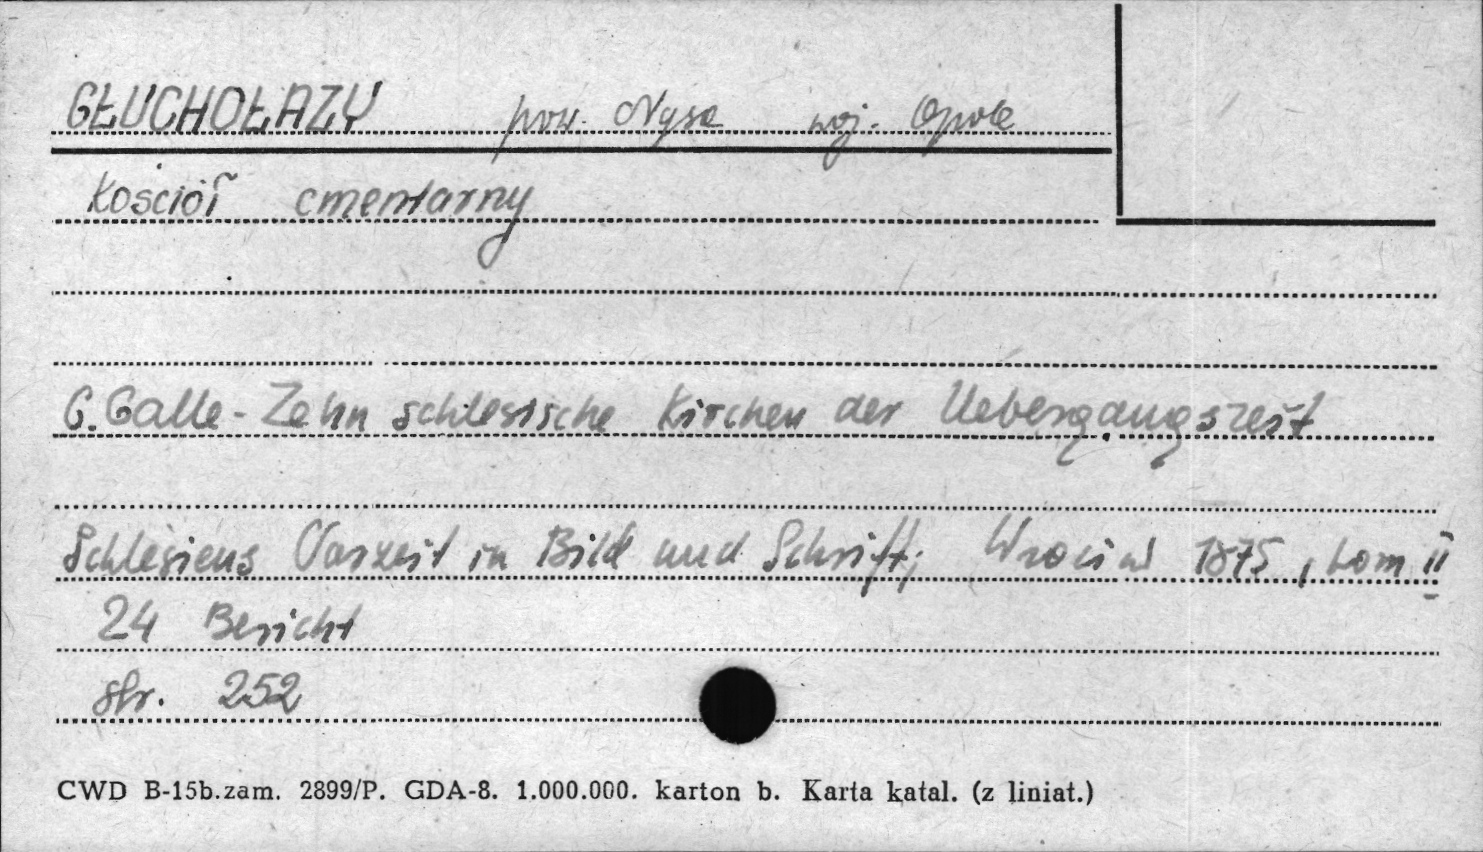 GŁUCHOŁAZY pow. Nysa woj. Opole
Kościół cmentarny
G. Galle - Zehn schlesische Kirchen der Uebergangszeit
Schlesiens Vorzeit in Bild und Schrift, Wrocław 1875, tom II
24 Bericht
str. 252
CWD B-15b.zam. 2899/P. GDA-8. 1.000.000. karton b. Karta katal. (z liniat.)